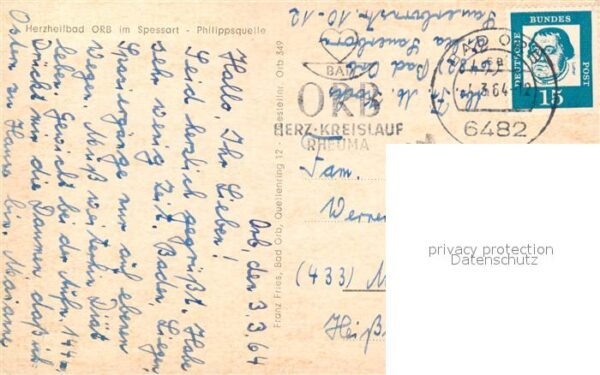 Herzheilbad ORB im Spessart - Philippsquelle
Orb, den 3.3.64
Hallo, Ihr Lieben!
Seid herzlich gegrüßt. Habe
sehr wenig Zeit. Bäder, Liegen,
Spaziergänge nur auf ebenen
Wegen. Muß weiterhin Diät
leben. Gewicht bei der Aufn.
Drückt mir die Daumen daß ich
Ostern zu Hause bin.
Franz Fries, Bad Orb, Quellenring 12 - Bestellnr. Orb 349
Bad Orb
Sauerbornstr. 10-12
BAD
ORB
HERZ-KREISLAUF
RHEUMA
BAD ORB
3.64-12
6482
DEUTSCHE
BUNDES
POST
15
Fam.
Werner
(433) M
Heiß
privacy protection
Datenschutz